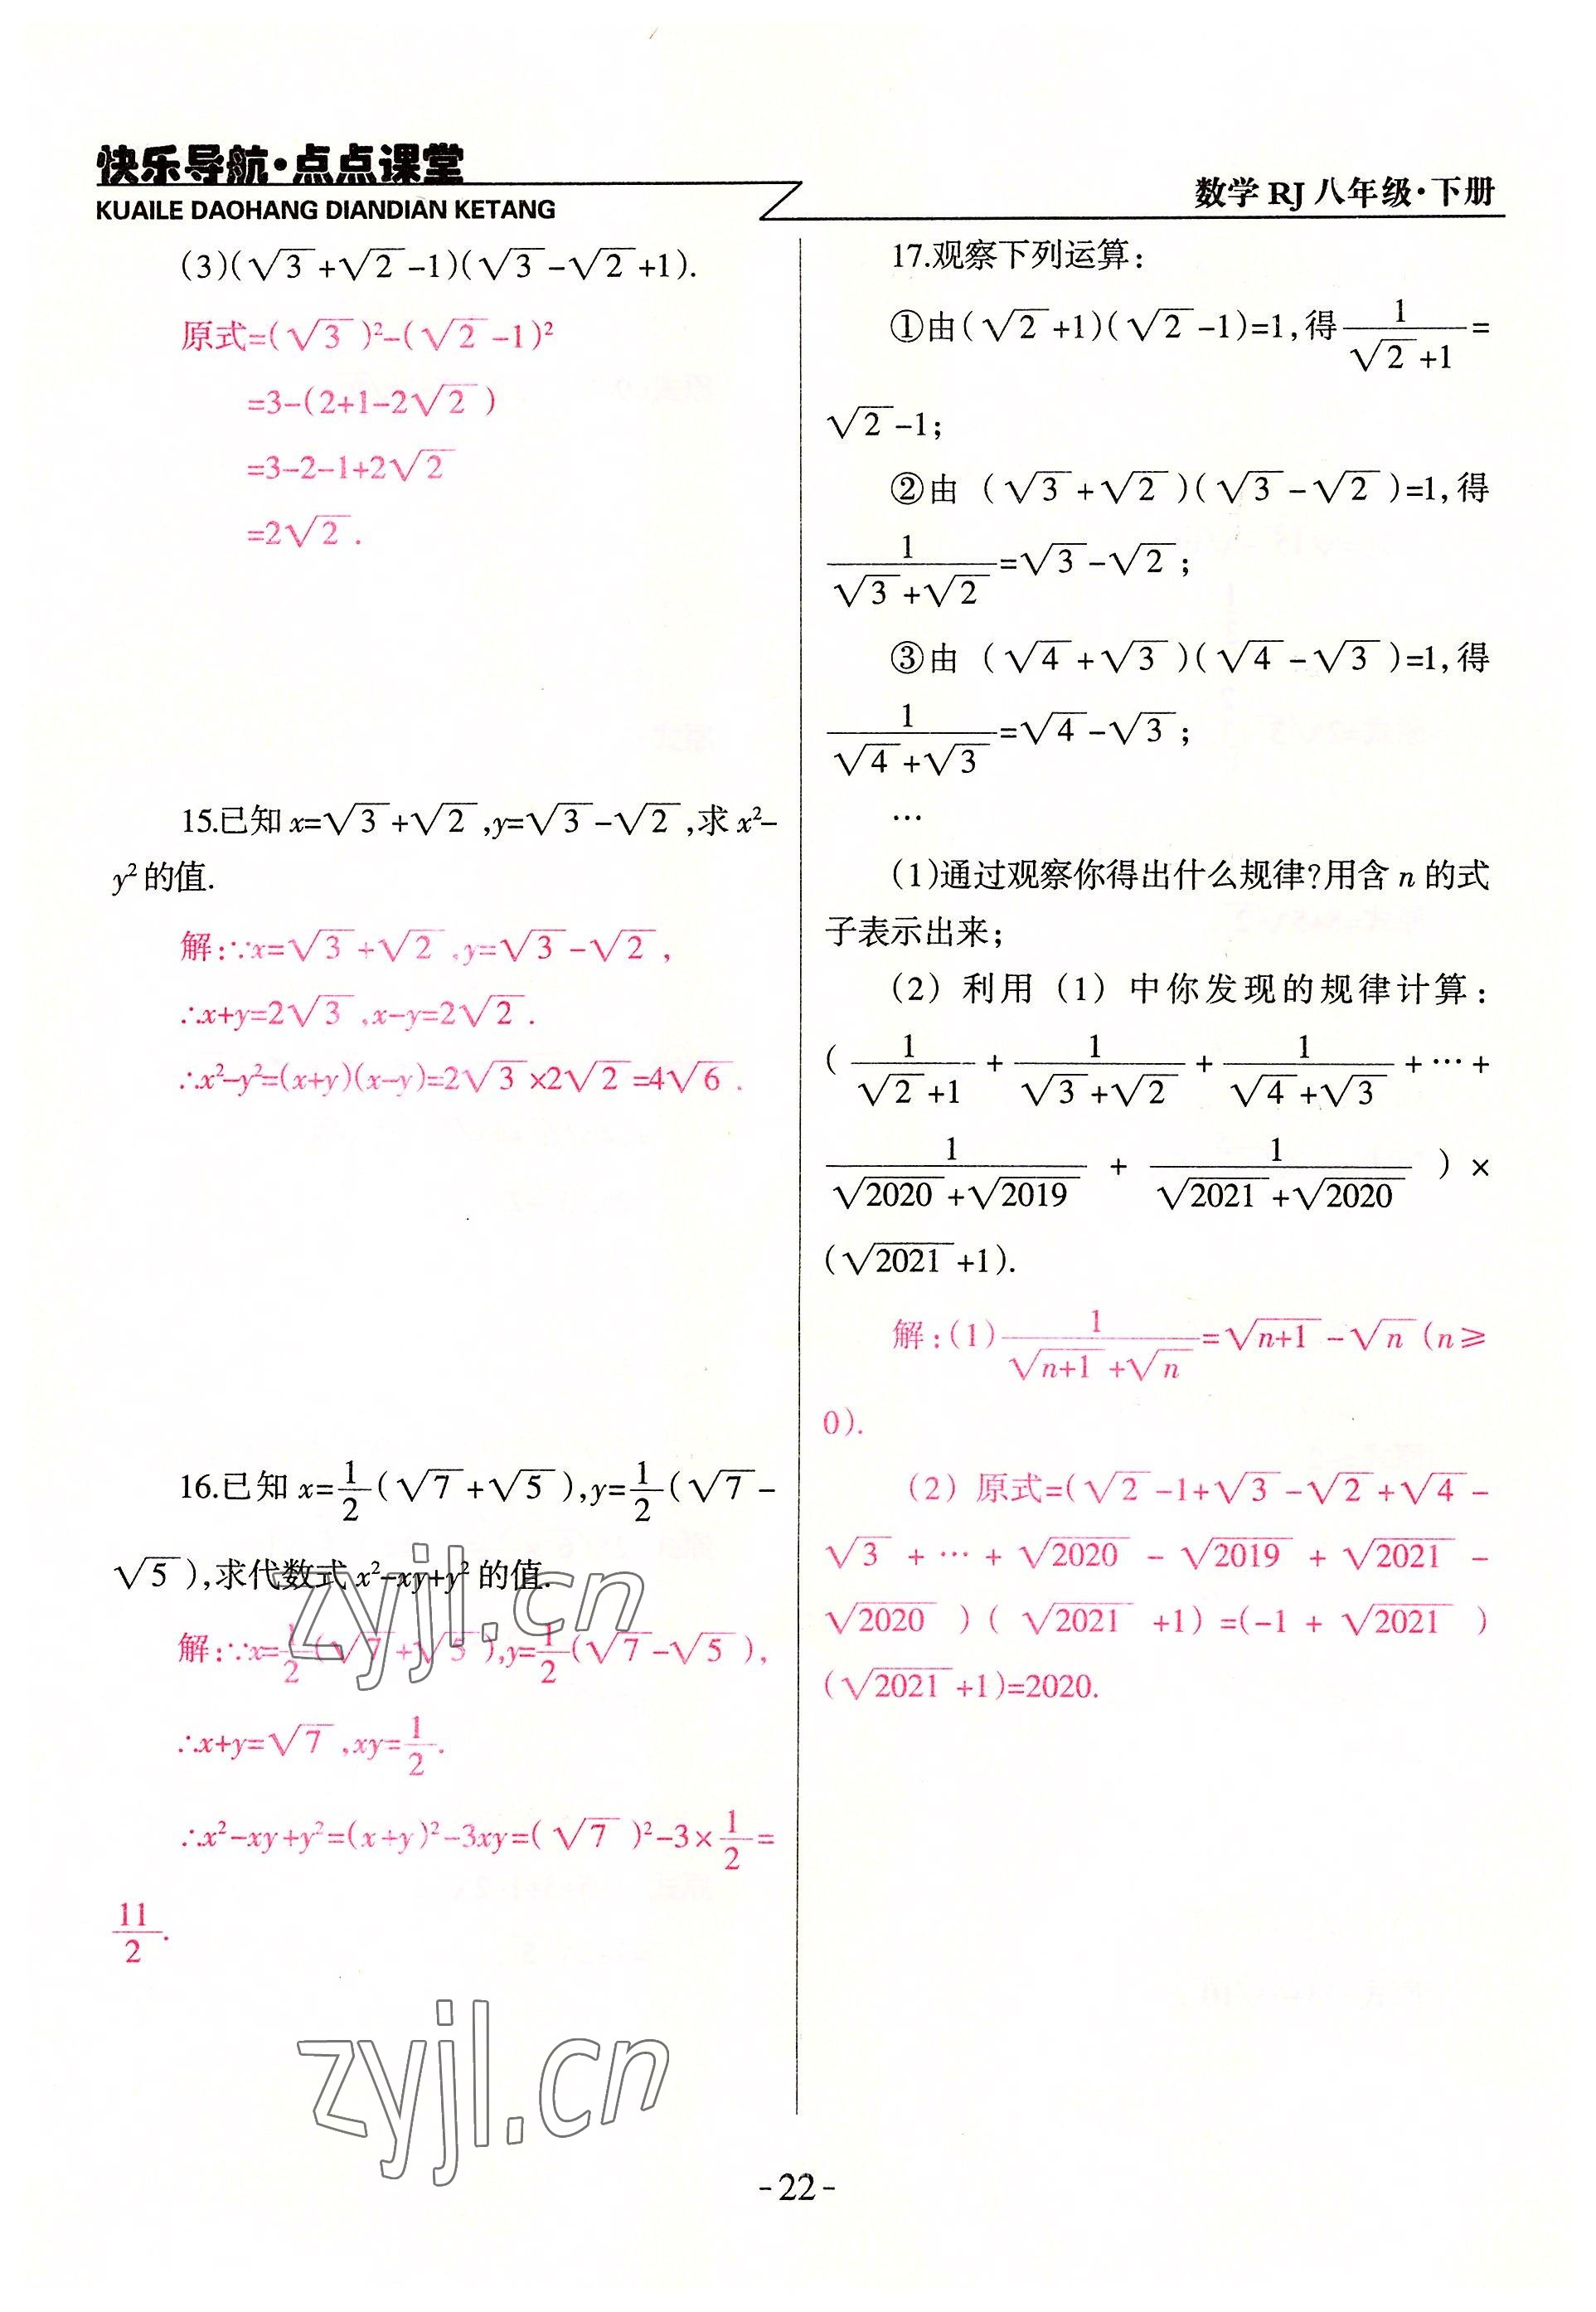 快乐导航·点点课堂
KUAILE DAOHANG DIANDIAN KETANG
数学 RJ 八年级·下册
(3)(√3+√2-1)(√3-√2+1).
原式=(√3)²-(√2-1)²
=3-(2+1-2√2)
=3-2-1+2√2
=2√2.
15.已知 x=√3+√2,y=√3-√2,求 x²-
y² 的值.
解:∵x=√3+√2,y=√3-√2,
∴x+y=2√3,x-y=2√2.
∴x²-y²=(x+y)(x-y)=2√3×2√2=4√6.
16.已知 x=1/2(√7+√5),y=1/2(√7-
√5),求代数式 x²-xy+y² 的值.
解:∵x=1/2(√7+√5),y=1/2(√7-√5),
∴x+y=√7,xy=1/2.
∴x²-xy+y²=(x+y)²-3xy=(√7)²-3×1/2=
11/2.
17.观察下列运算:
①由(√2+1)(√2-1)=1,得1/(√2+1)=
√2-1;
②由(√3+√2)(√3-√2)=1,得
1/(√3+√2)=√3-√2;
③由(√4+√3)(√4-√3)=1,得
1/(√4+√3)=√4-√3;
…
(1)通过观察你得出什么规律?用含 n 的式
子表示出来;
(2)利用(1)中你发现的规律计算:
(1/(√2+1)+1/(√3+√2)+1/(√4+√3)+…+
1/(√2020+√2019)+1/(√2021+√2020))×
(√2021+1).
解:(1)1/(√(n+1)+√n)=√(n+1)-√n(n≥
0).
(2)原式=(√2-1+√3-√2+√4-
√3+…+√2020-√2019+√2021-
√2020)(√2021+1)=(-1+√2021)
(√2021+1)=2020.
zyjl.cn
zyjl.cn
-22-